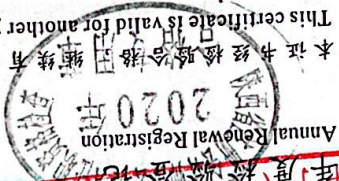 年度检验登记
Annual Renewal Registration
2020年
本证书经检验合格，继续有
This certificate is valid for another